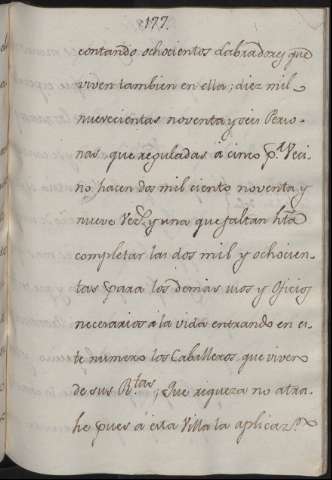 177.
contando ochocientos Labradores que
viven tambien en ella; diez mil
nuevecientas noventa y seis Perso-
nas que reguladas á cinco pr. Veci-
no hacen dos mil ciento noventa y
nueve Vezs. y una que faltan hta.
completar las dos mil y ochocien-
tas para los demas usos y Oficios
necesarios á la vida entrando en es-
te numero los Caballeros que viven
de sus Rtas., Que riqueza no atra-
he pues á esta Villa la aplicazn.